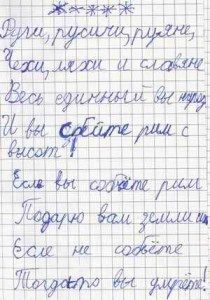 Руги, русичи, руяне,
Чехи, ляхи и славяне
Весь единный вы народ
И вы сбейте рим с
высот!
Если вы собьёте рим
Подарю вам земли их
Есле не собьёте
Тогда вы умрёте!